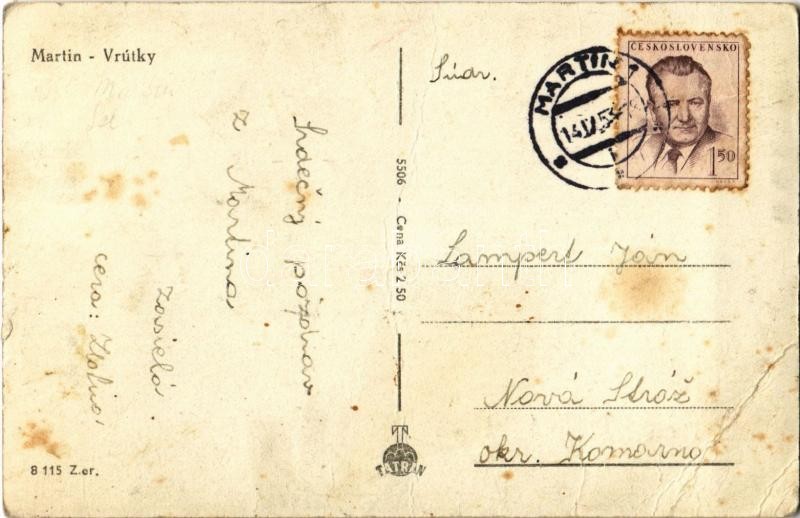 Martin - Vrútky
Srdečný pozdrav
z Martina
Zasiela
cera:
8 115 Z.er.
5506 - Cena Kčs 2 50
TATRAN
Súdr.
MARTIN 1
14.IV.53
ČESKOSLOVENSKO
1 50
Lampert Ján
Nová Stráž
okr. Komárno